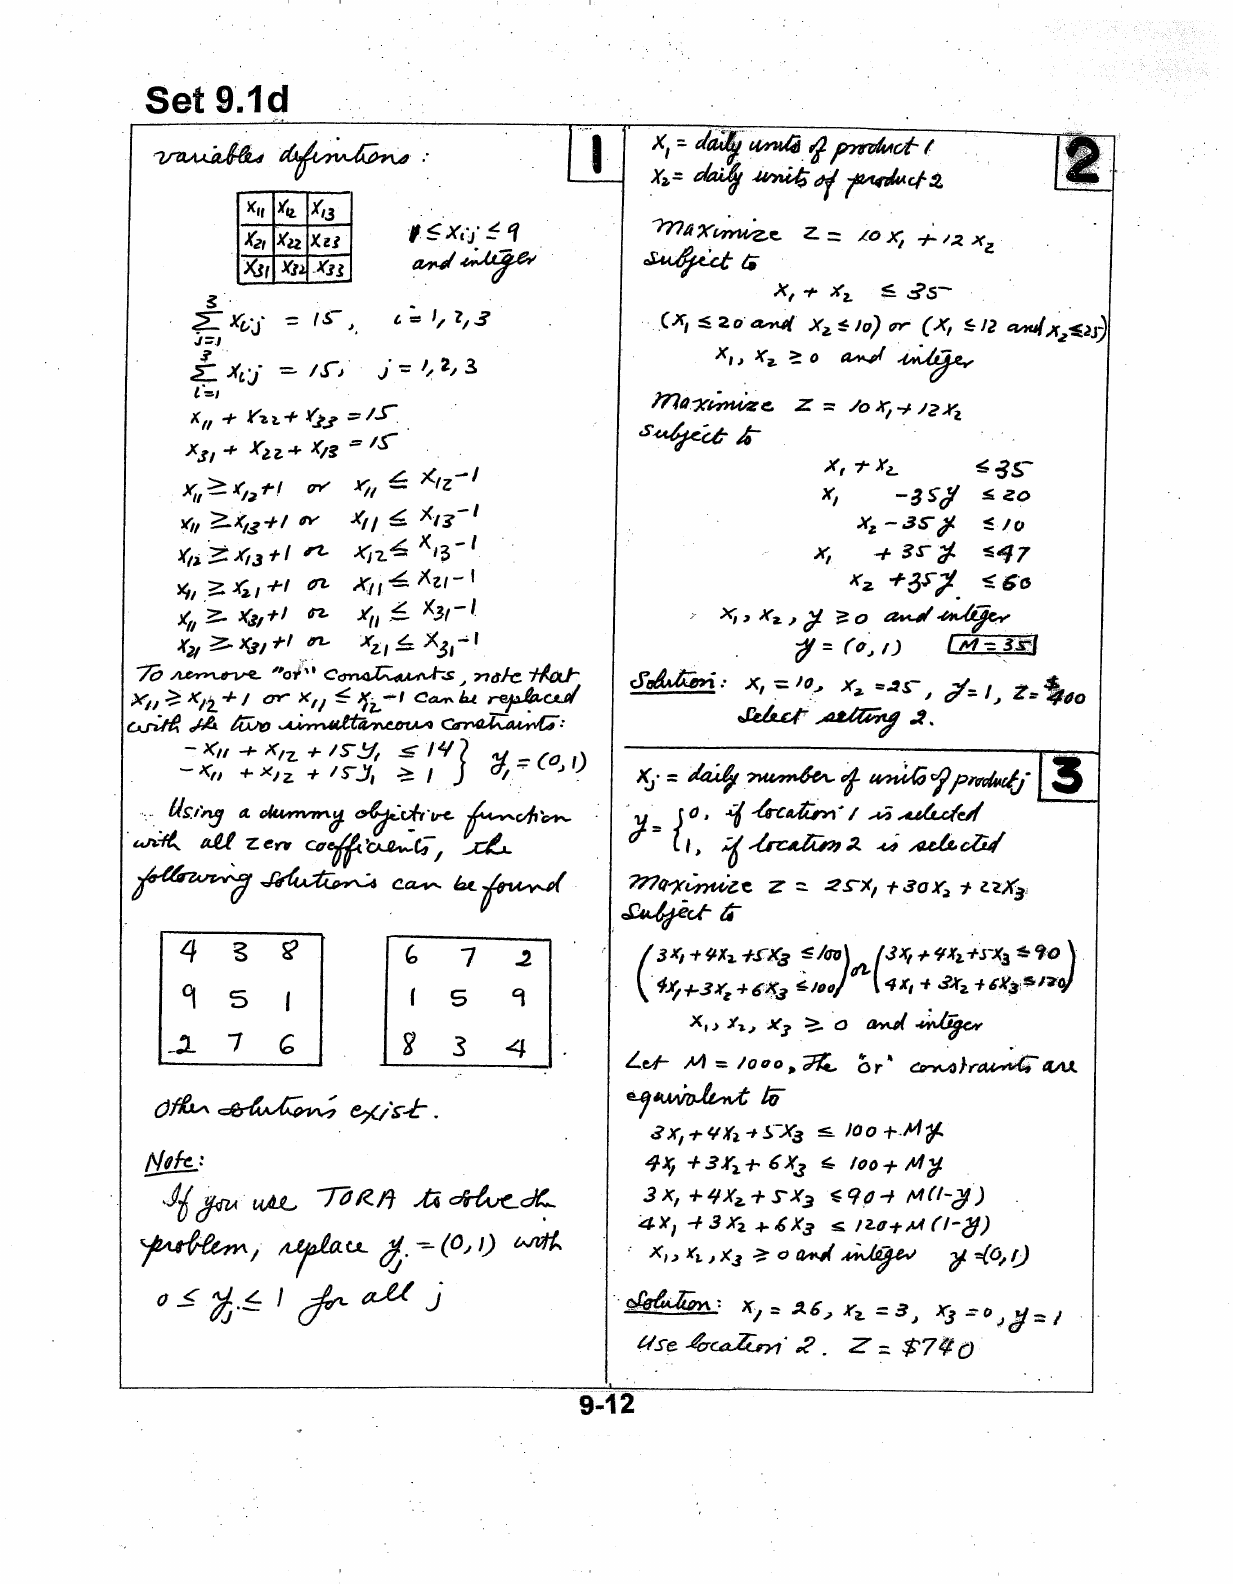 Set 9.1d
1
variables definitions :
X11 X12 X13
X21 X22 X23
X31 X32 X33
1 ≤ Xij ≤ 9
and integer
3
Σ Xij = 15, i = 1, 2, 3
j=1
3
Σ Xij = 15, j = 1, 2, 3
i=1
X11 + X22 + X33 = 15
X31 + X22 + X13 = 15
X11 ≥ X12 + 1 or X11 ≤ X12 - 1
X11 ≥ X13 + 1 or X11 ≤ X13 - 1
X12 ≥ X13 + 1 or X12 ≤ X13 - 1
X11 ≥ X21 + 1 or X11 ≤ X21 - 1
X11 ≥ X31 + 1 or X11 ≤ X31 - 1
X21 ≥ X31 + 1 or X21 ≤ X31 - 1
To remove "or" constraints, note that
X11 ≥ X12 + 1 or X11 ≤ X12 - 1 can be replaced
with the two simultaneous constraints:
- X11 + X12 + 15 y1 ≤ 14
- X11 + X12 + 15 y1 ≥ 1 } y1 = (0, 1)
Using a dummy objective function
with all zero coefficients, the
following solutions can be found
4 3 8
9 5 1
2 7 6
6 7 2
1 5 9
8 3 4
Other solutions exist.
Note:
If you use TORA to solve the
problem, replace yj = (0, 1) with
0 ≤ yj ≤ 1 for all j
2
X1 = daily units of product 1
X2 = daily units of product 2
Maximize Z = 10 X1 + 12 X2
subject to
X1 + X2 ≤ 35
(X1 ≤ 20 and X2 ≤ 10) or (X1 ≤ 12 and X2 ≤ 25)
X1, X2 ≥ 0 and integer
Maximize Z = 10 X1 + 12 X2
subject to
X1 + X2 ≤ 35
X1 - 35y ≤ 20
X2 - 35y ≤ 10
X1 + 35y ≤ 47
X2 + 35y ≤ 60
X1, X2, y ≥ 0 and integer
y = (0, 1) M = 35
Solution: X1 = 10, X2 = 25, y = 1, Z = $400
Select setting 2.
3
Xj = daily number of units of product j
y = { 0, if location 1 is selected
1, if location 2 is selected
Maximize Z = 25X1 + 30X2 + 22X3
Subject to
(3X1 + 4X2 + 5X3 ≤ 100) or (3X1 + 4X2 + 5X3 ≤ 90)
(4X1 + 3X2 + 6X3 ≤ 100) (4X1 + 3X2 + 6X3 ≤ 120)
X1, X2, X3 ≥ 0 and integer
Let M = 1000, The "or" constraints are
equivalent to
3X1 + 4X2 + 5X3 ≤ 100 + My
4X1 + 3X2 + 6X3 ≤ 100 + My
3X1 + 4X2 + 5X3 ≤ 90 + M(1-y)
4X1 + 3X2 + 6X3 ≤ 120 + M(1-y)
X1, X2, X3 ≥ 0 and integer y = (0, 1)
Solution: X1 = 26, X2 = 3, X3 = 0, y = 1
Use location 2. Z = $740
9-12